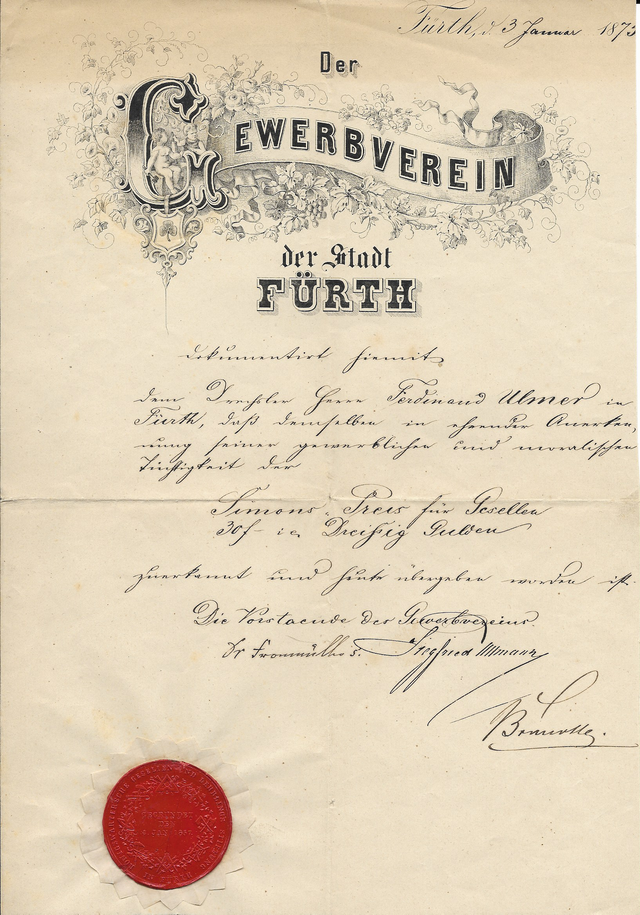 Fürth, d. 3 Januar 1873
Der
GEWERBVEREIN
der Stadt
FÜRTH
dokumentirt hiemit
dem Drechsler Herrn Ferdinand Ulmer in
Fürth, daß demselben in ehrender Anerken„
nung seiner gewerblichen und moralischen
Tüchtigkeit der
Simons„Preis für Gesellen
30f– Dreißig Gulden
zuerkannt und heute übergeben worden ist.
Die Vorstaende des Gewerbvereins.
Dr Fronmüller s. Siegfried Ullmann